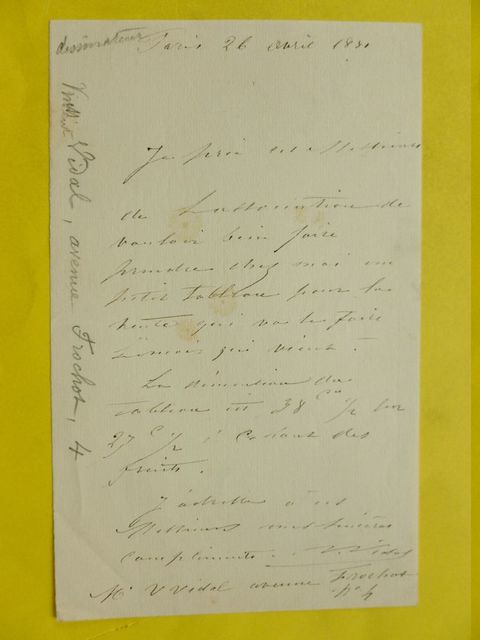 dessinateur
Paris 26 avril 18
Vincent Vidal, avenue Frochot, 4
Je prie ces Messieurs
de L'association de
vouloir bien faire
prendre chez moi un
petit tableau pour la
vente qui va se faire
qui vient.
La dimension du
tableau est 38 c 1/2 sur
27 c 1/2 : des
fruits.
J'adresse à ces
Messieurs mes sincères
compliments. V. Vidal
Mr V Vidal avenue Frochot
No 4